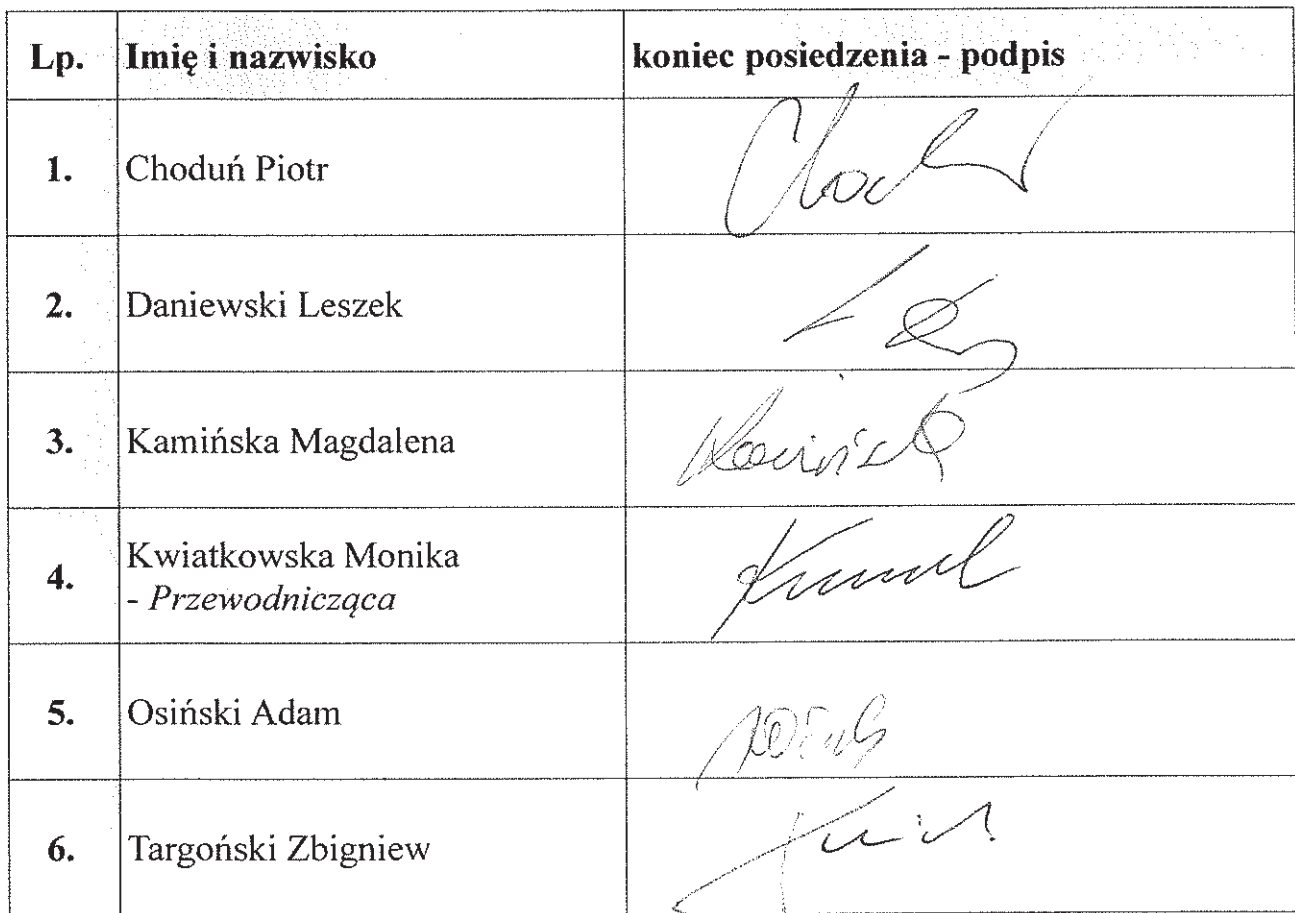 Lp. Imię i nazwisko koniec posiedzenia - podpis
1. Choduń Piotr
2. Daniewski Leszek
3. Kamińska Magdalena
4. Kwiatkowska Monika
- Przewodnicząca
5. Osiński Adam
6. Targoński Zbigniew